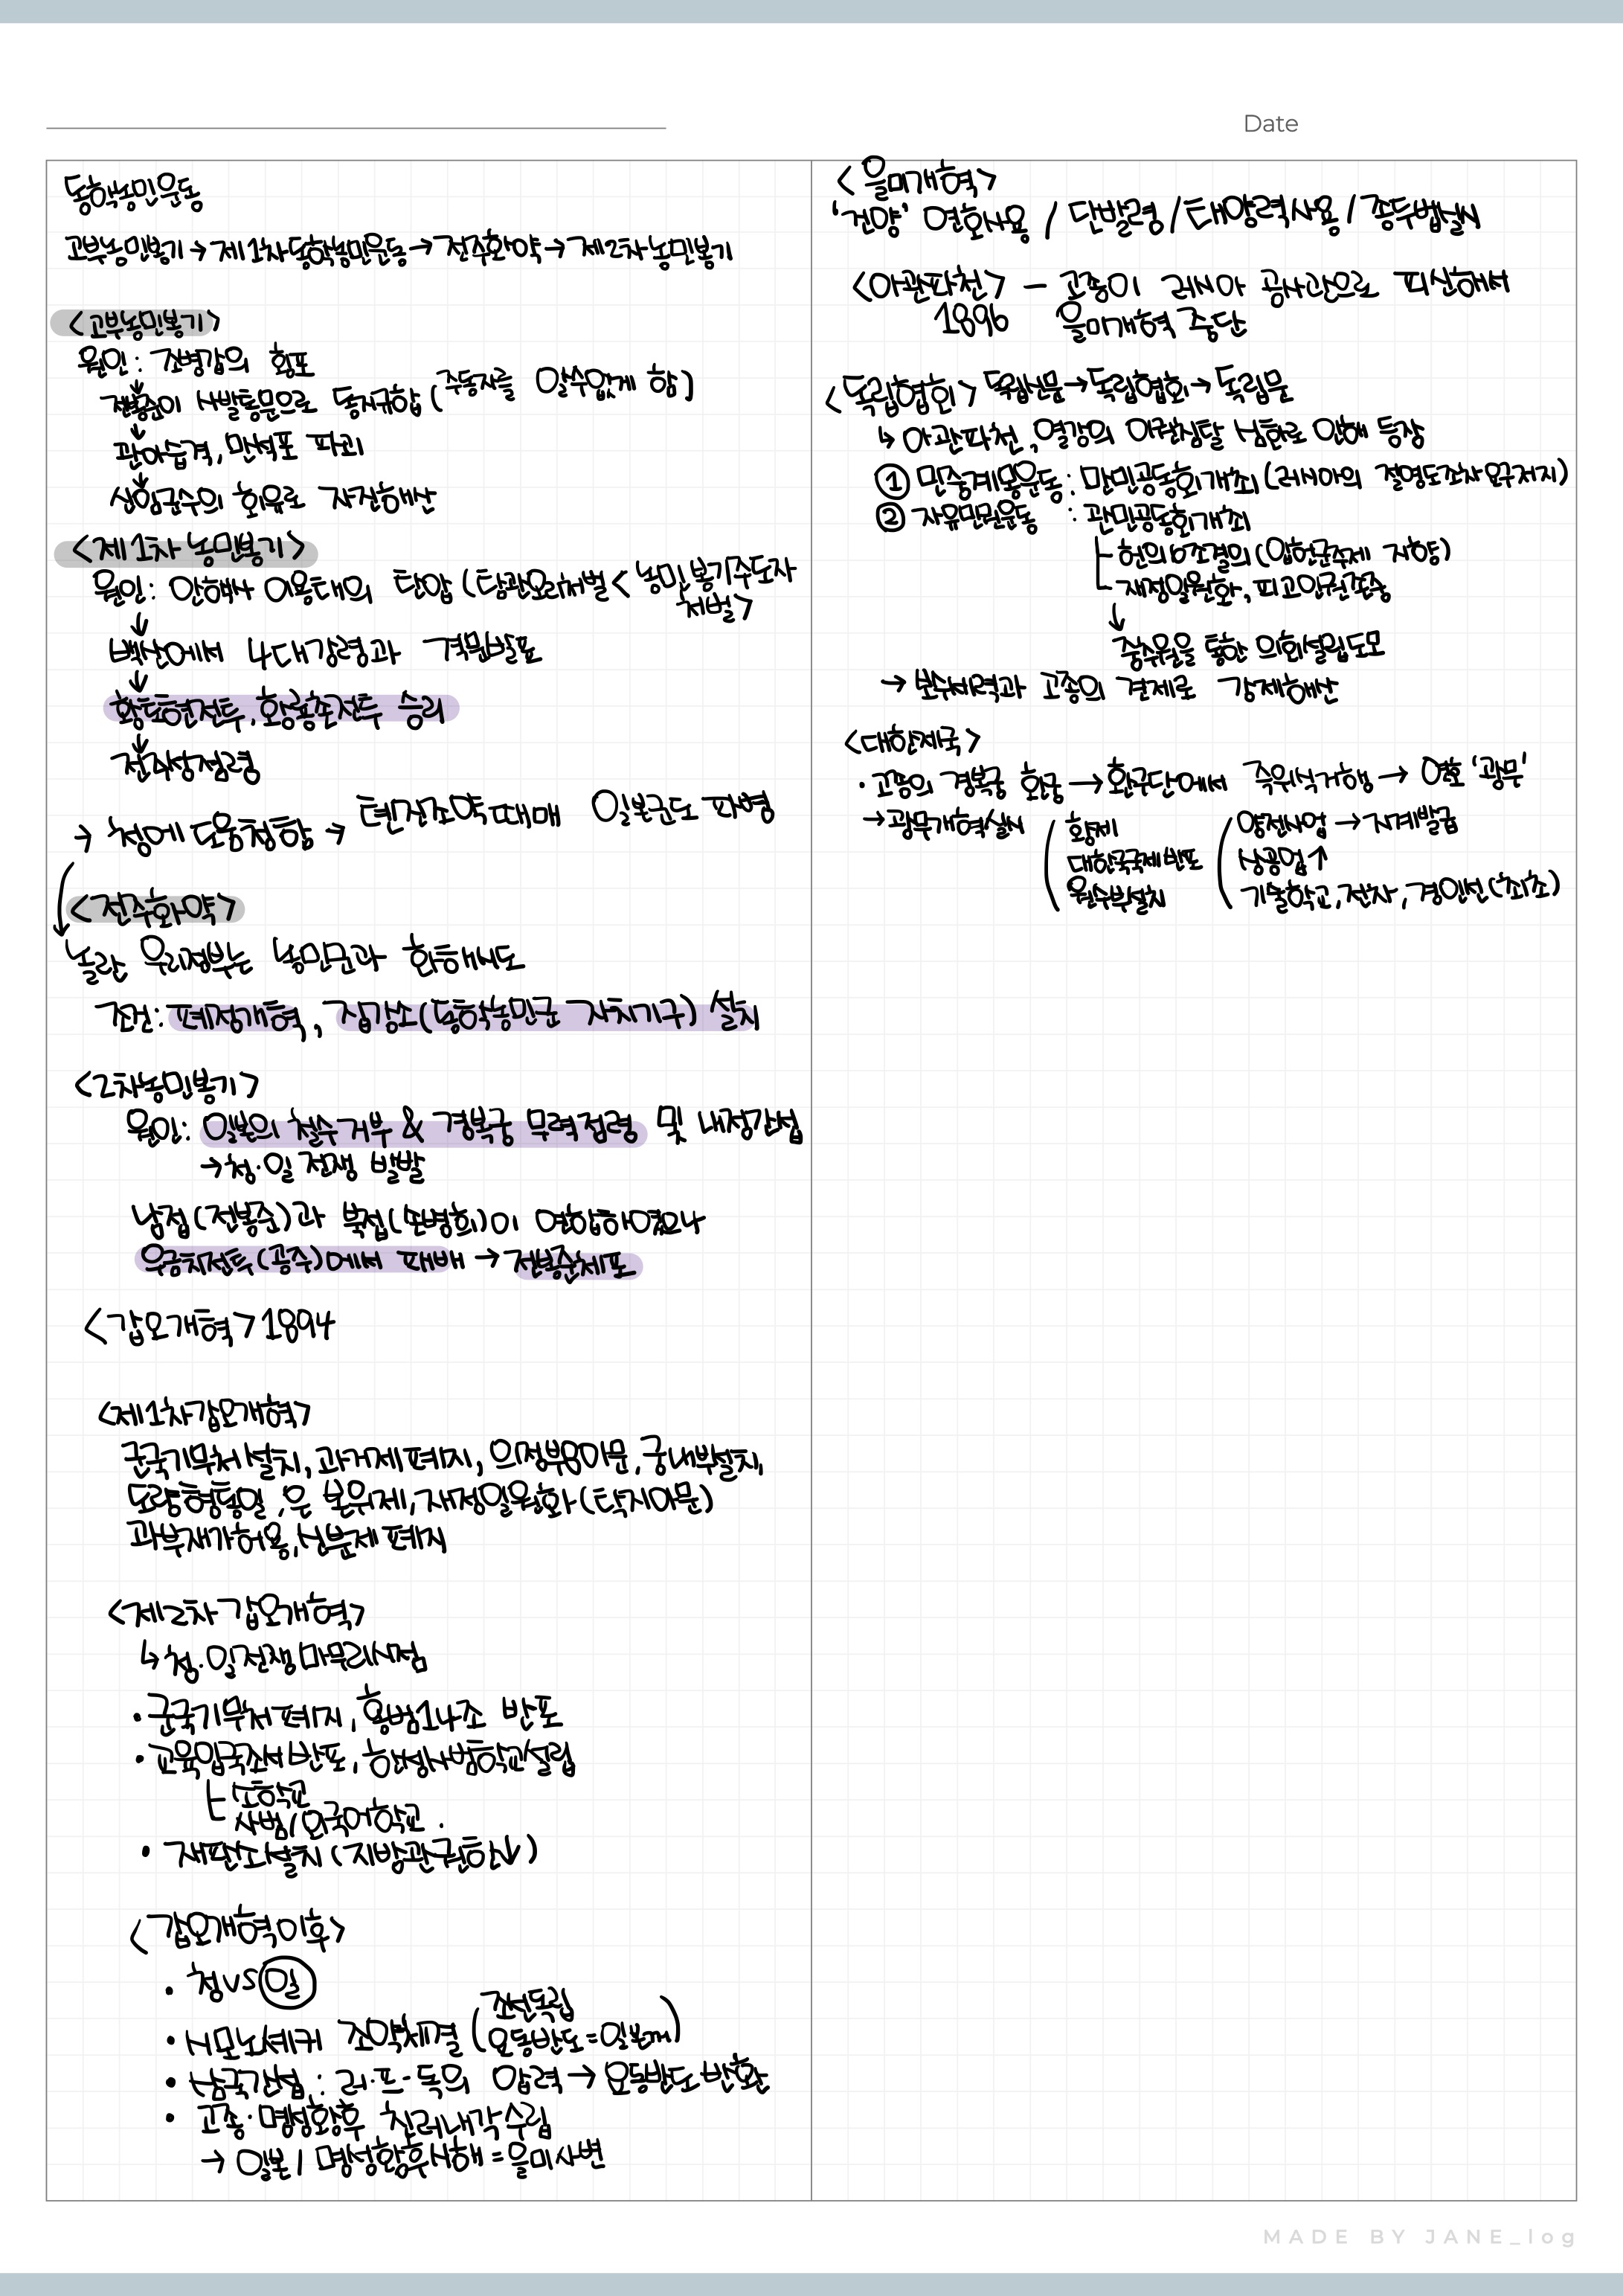 Date
동학농민운동
고부농민봉기 → 제1차 동학농민운동 → 전주화약 → 제2차 농민봉기
<고부농민봉기>
원인 : 조병갑의 횡포
↓
전봉준이 사발통문으로 동지규합 (주동자를 알수없게 함)
↓
관아습격, 만석포 파괴
↓
신임군수의 회유로 자진해산
<제1차 농민봉기>
원인 : 안핵사 이용태의 탄압 (탐관오리처벌 < 농민봉기주도자
처벌>
↓
백산에서 4대강령과 격문발표
↓
황토현전투, 황룡촌전투 승리
↓
전주성점령
→ 청에 도움청함 → 텐진조약때매 일본군도 파병
<전주화약>
놀란 우리정부는 농민군과 화해시도
조건 : 폐정개혁, 집강소(동학농민군 자치기구) 설치
<2차농민봉기>
원인 : 일본의 철수거부 & 경복궁 무력점령 및 내정간섭
→ 청·일 전쟁 발발
남접(전봉준)과 북접(손병희)이 연합하였으나
우금치전투(공주)에서 패배 → 전봉준체포
<갑오개혁> 1894
<제1차갑오개혁>
군국기무처설치, 과거제폐지, 의정부8아문, 궁내부설치,
도량형통일, 은 본위제, 재정일원화(탁지아문)
과부재가허용, 신분제 폐지
<제2차 갑오개혁>
↳ 청·일전쟁 마무리시점
· 군국기무처 폐지, 홍범14조 반포
· 교육입국조서 반포, 한성사범학교설립
소학교
사범/외국어학교 .
· 재판소설치 (지방관권한↓)
<갑오개혁이후>
· 청 VS 일
· 시모노세키 조약체결 (조선독립
요동반도=일본꺼)
· 삼국간섭 : 러·프·독의 압력 → 요동반도 반환
· 고종·명성황후 친러내각 수립
→ 일본 / 명성황후시해 = 을미사변
<을미개혁>
'건양' 연호사용 / 단발령 / 태양력사용 / 종두법실시
<아관파천> - 고종이 러시아 공사관으로 피신해서
1896 을미개혁 중단
<독립협회> 독립신문 → 독립협회 → 독립문
↳ 아관파천, 열강의 이권침탈 심화로 인해 등장
① 민중계몽운동 : 만민공동회개최 (러시아의 절영도조차요구저지)
② 자유민권운동 : 관민공동회개최
헌의6조결의 (입헌군주제 지향)
재정일원화, 피고인권존중
↓
중추원을 통한 의회설립도모
→ 보수세력과 고종의 결제로 강제해산
<대한제국>
· 고종의 경복궁 환궁 → 환구단에서 즉위식거행 → 연호 '광무'
→ 광무개혁실시
황제
대한국국제반포
원수부설치
양전사업 → 지계발급
상공업↑
기술학교, 전차, 경인선(최초)
MADE BY JANE_log